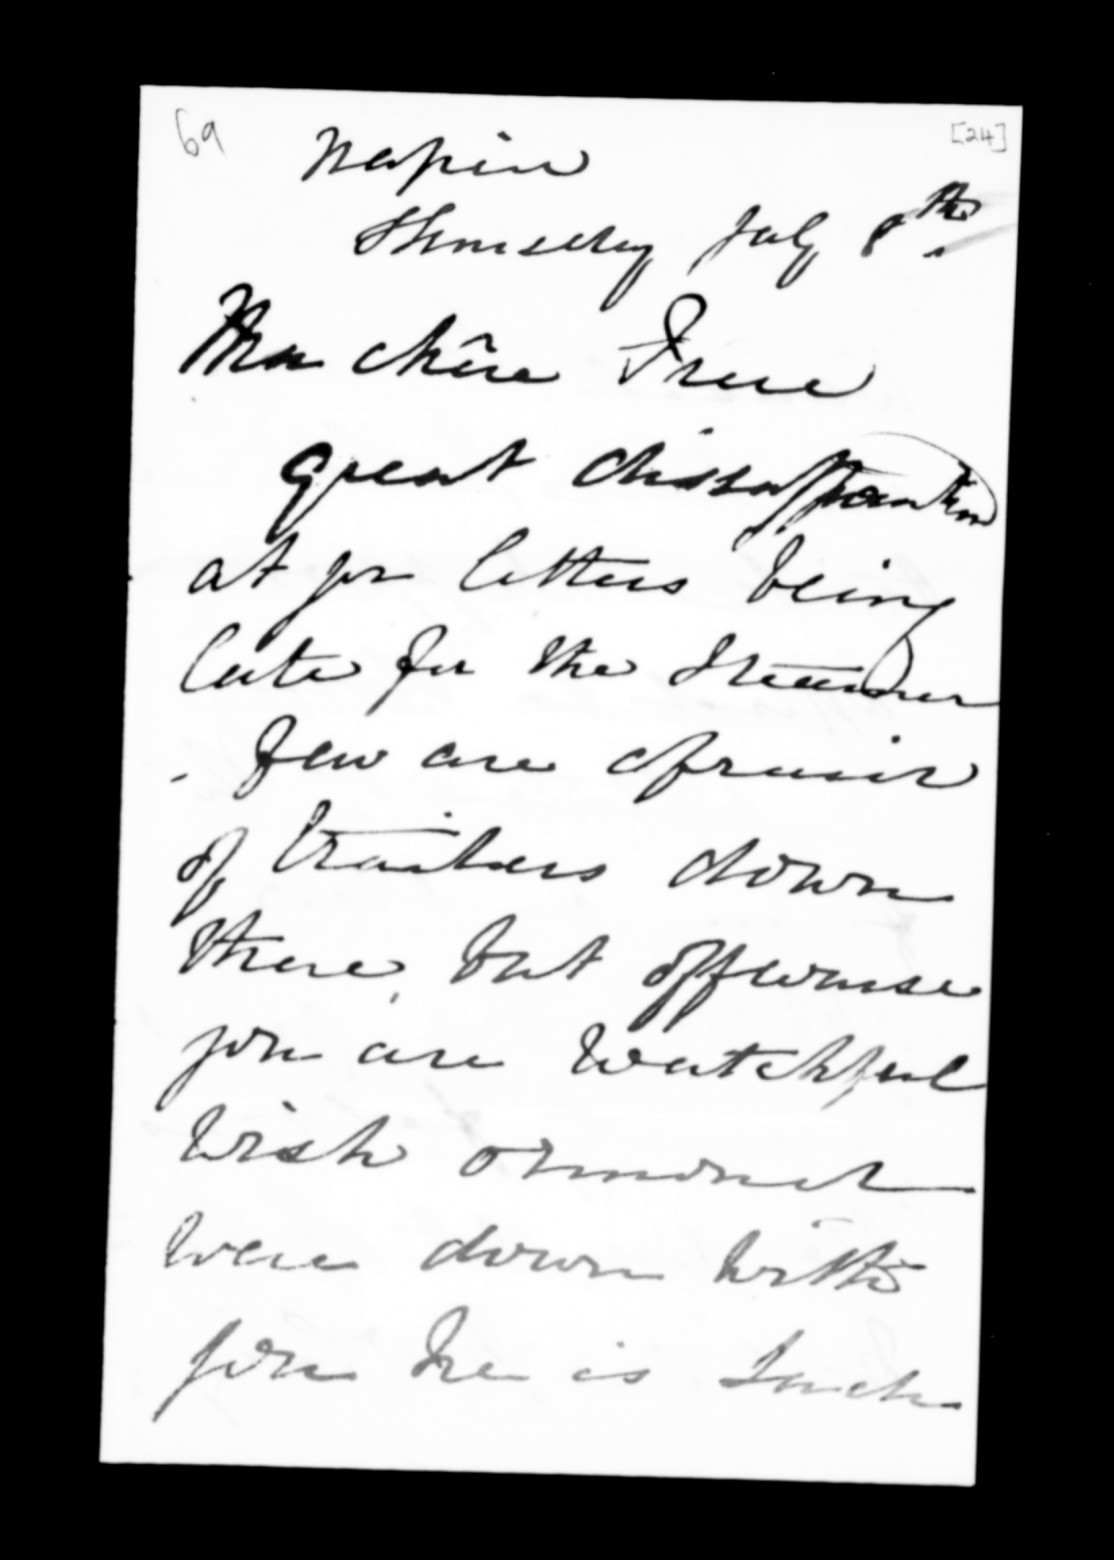 69
[24]
Napier
Thursday July 8th.
Ma chère
great dissapointm
at yr letters being
late for the Steamer
. few are afraid
of traitors down
there, but otherwise
you are watchful
Wish Ormond
were down with
you he is such